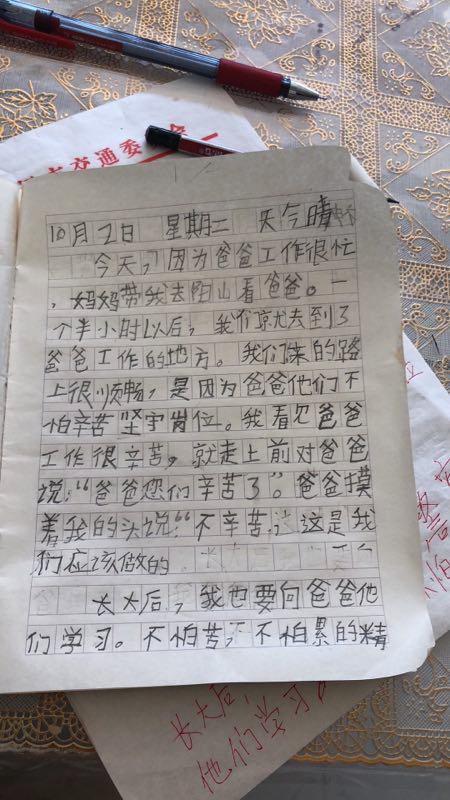 交通委
10月2日 星期二 天今晴
今天,因为爸爸工作很忙
,妈妈带我去阳山看爸爸。一
个半小时以后,我们就去到了
爸爸工作的地方。我们来的路
上很顺畅,是因为爸爸他们不
怕辛苦坚守岗位。我看见爸爸
工作很辛苦,就走上前对爸爸
说:“爸爸您们辛苦了”。爸爸摸
着我的头说:“不辛苦,这是我
们应该做的
长大后,我也要向爸爸他
们学习。不怕苦,不怕累的精
长大后,
他们学习